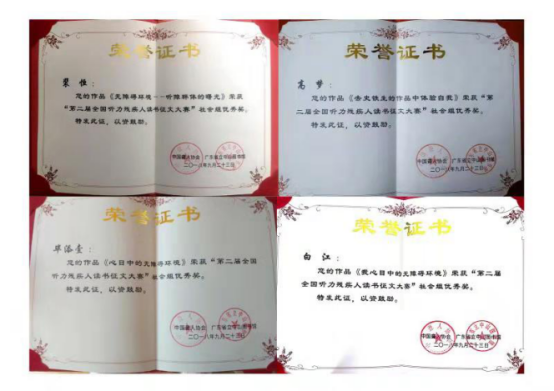 荣誉证书
您的作品《无障碍环境——听障群体的曙光》荣获
“第二届全国听力残疾人读书征文大赛”社会组优秀奖。
特发此证,以资鼓励。
中国聋人协会 广东省立中山图书馆
二〇一八年九月二十三日
荣誉证书
高梦:
您的作品《去史铁生的作品中体验自我》荣获“第
二届全国听力残疾人读书征文大赛”社会组优秀奖。
特发此证,以资鼓励。
中国聋人协会 广东省立中山图书馆
二〇一八年九月二十三日
荣誉证书
您的作品《心目中的无障碍环境》荣获“第二届全国
听力残疾人读书征文大赛”社会组优秀奖。
特发此证,以资鼓励。
中国聋人协会 广东省立中山图书馆
二〇一八年九月二十三日
荣誉证书
白江:
您的作品《我心目中的无障碍环境》荣获“第二届
全国听力残疾人读书征文大赛”社会组优秀奖。
特发此证,以资鼓励。
中国聋人协会 广东省立中山图书馆
二〇一八年九月二十三日